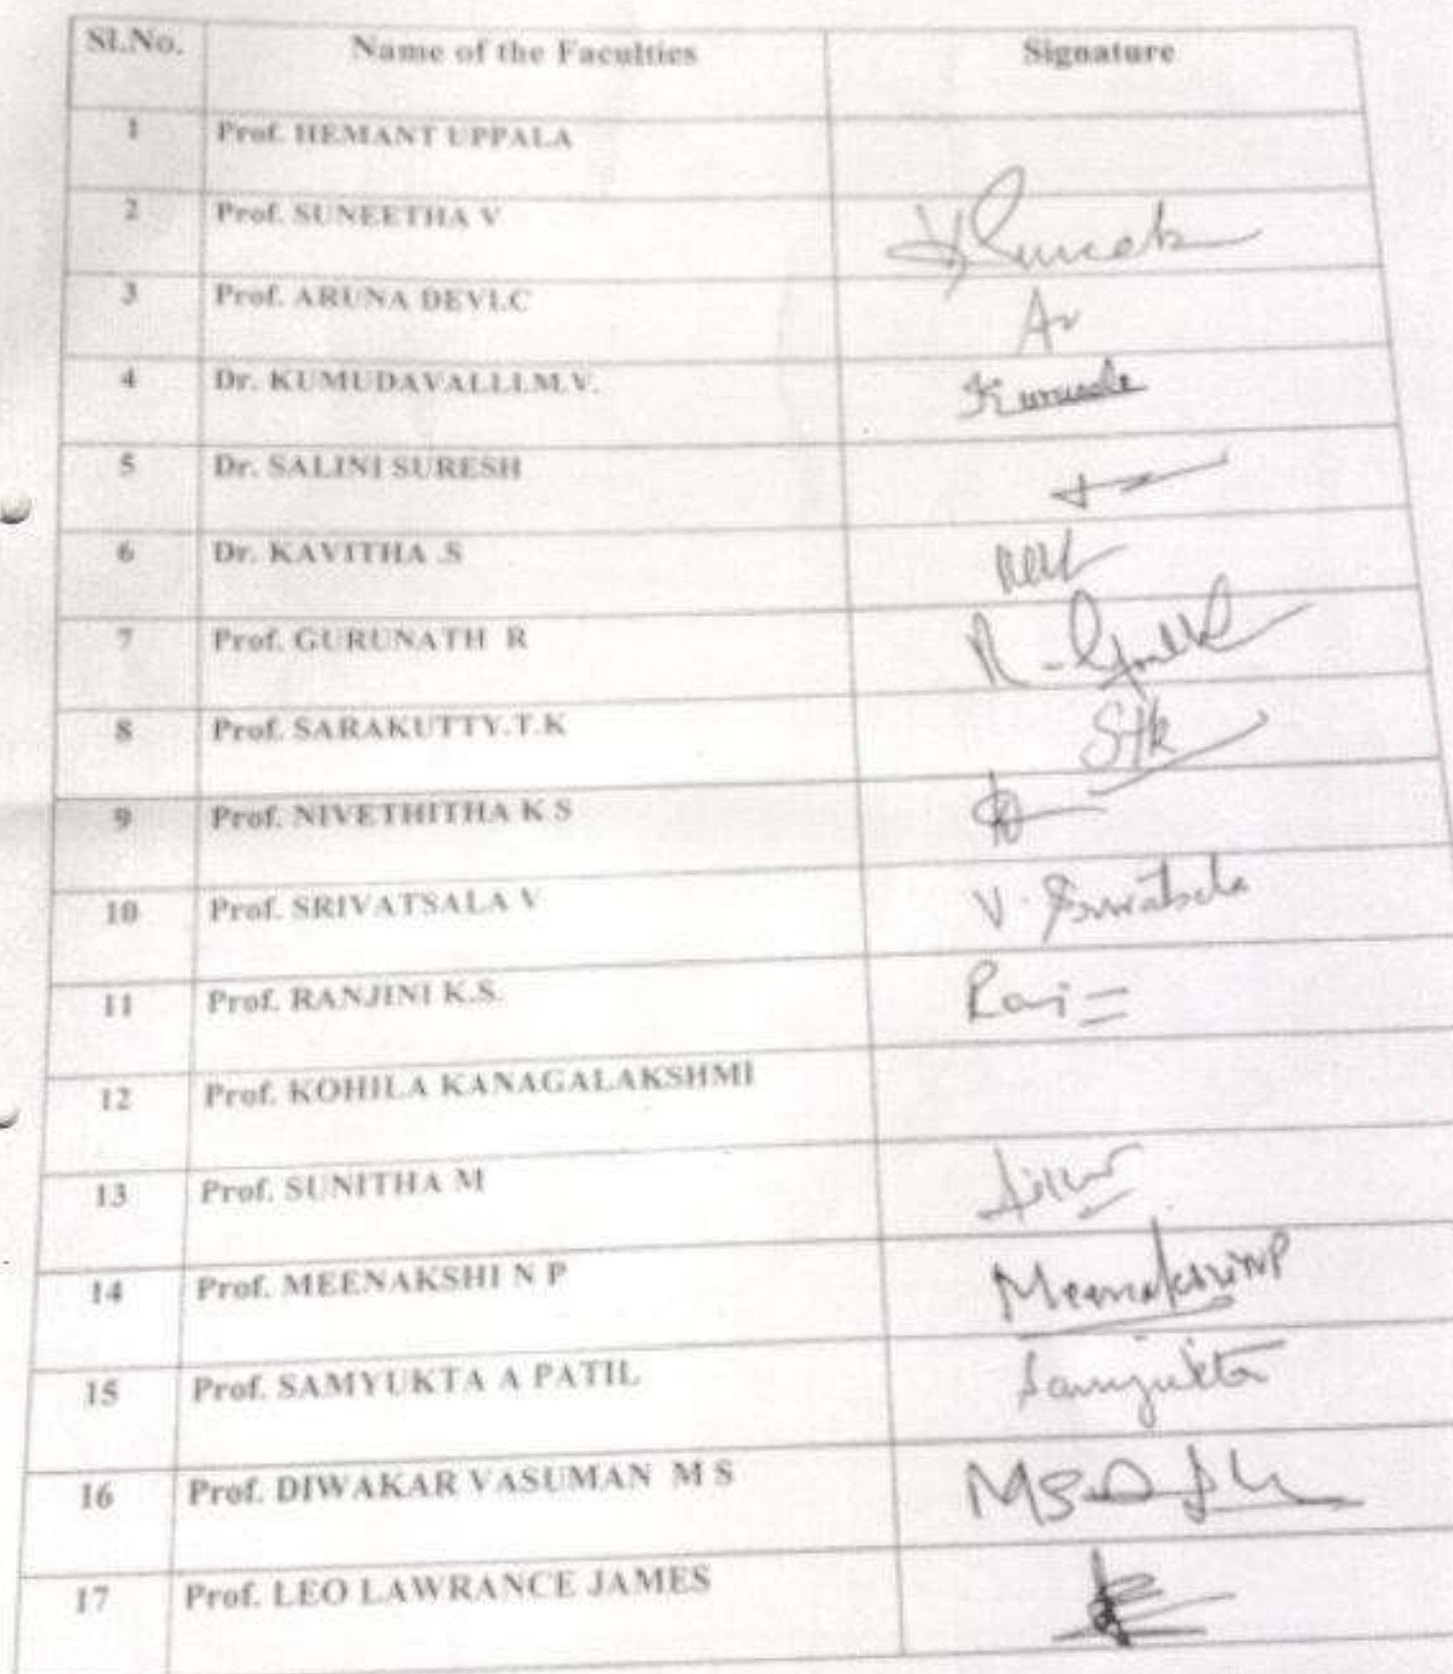 Sl.No. Name of the Faculties Signature
1 Prof. HEMANT UPPALA
2 Prof. SUNEETHA V
3 Prof. ARUNA DEVI.C Ar
4 Dr. KUMUDAVALLI.M.V.
5 Dr. SALINI SURESH
6 Dr. KAVITHA .S
7 Prof. GURUNATH R R -
8 Prof. SARAKUTTY.T.K Stk
9 Prof. NIVETHITHA K S
10 Prof. SRIVATSALA V V. Srivatsala
11 Prof. RANJINI K.S.
12 Prof. KOHILA KANAGALAKSHMI
13 Prof. SUNITHA M
14 Prof. MEENAKSHI N P Meenakshi NP
15 Prof. SAMYUKTA A PATIL Samyukta
16 Prof. DIWAKAR VASUMAN M S
17 Prof. LEO LAWRANCE JAMES